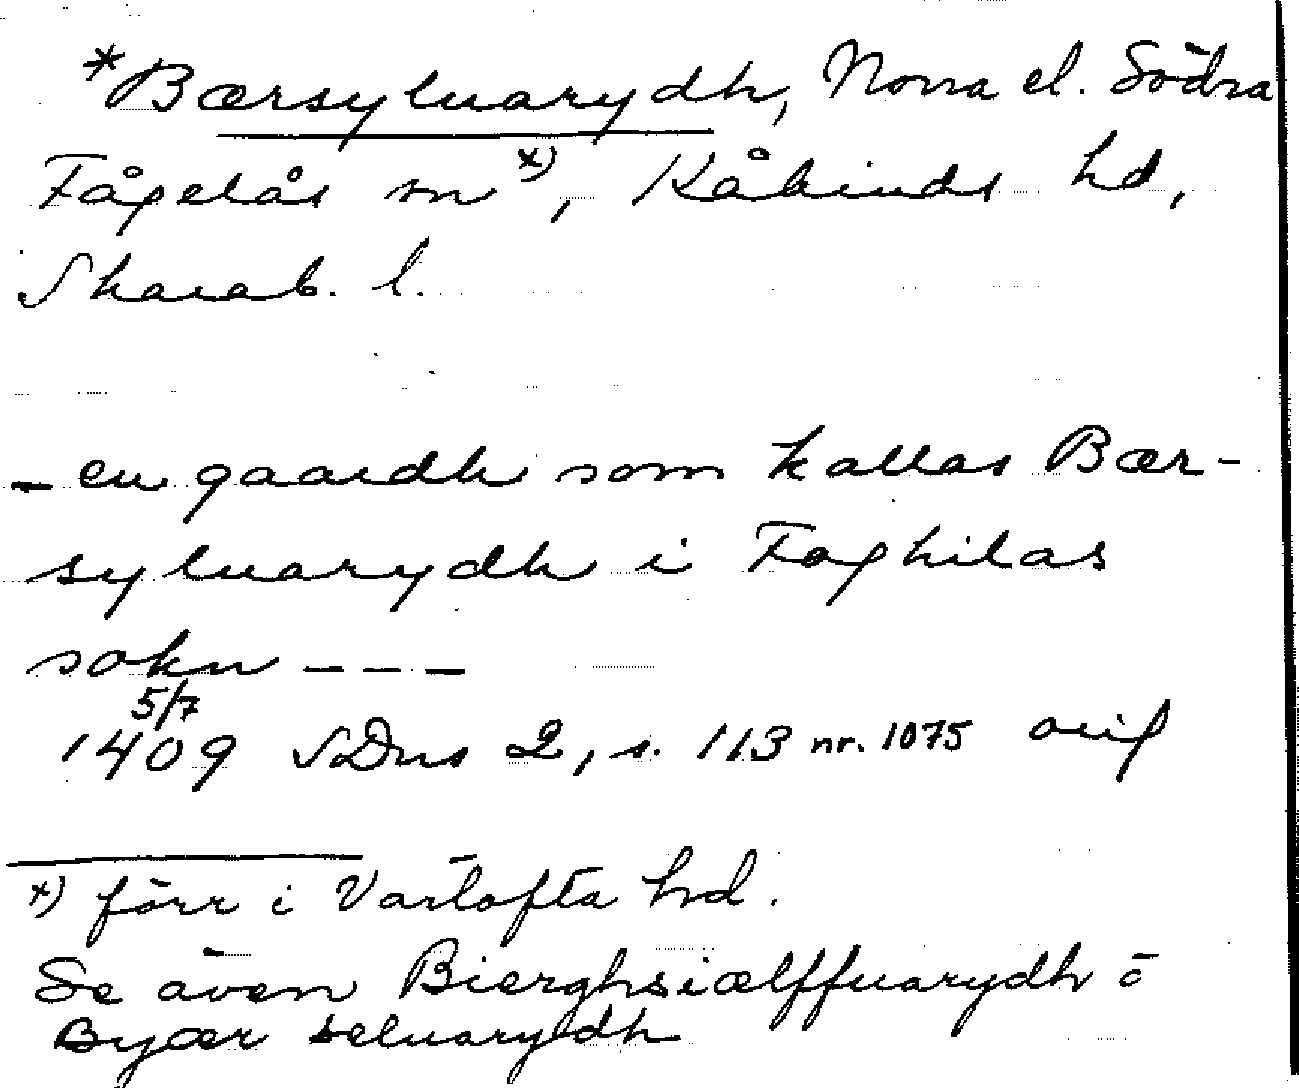 *Bærsyluarydh, Norra el. Södra
Fågelås sn x), Kåkinds hd,
Skarab. l.
- en gaardh som kallas Bær-
syluarydh i Foghilas
sokn ----
5/7
1409 SDns 2, s. 113 nr. 1075 orig
x) förr i Vartofta hd.
Se även Bierghsiælffuarydh o
Byær seluarydh